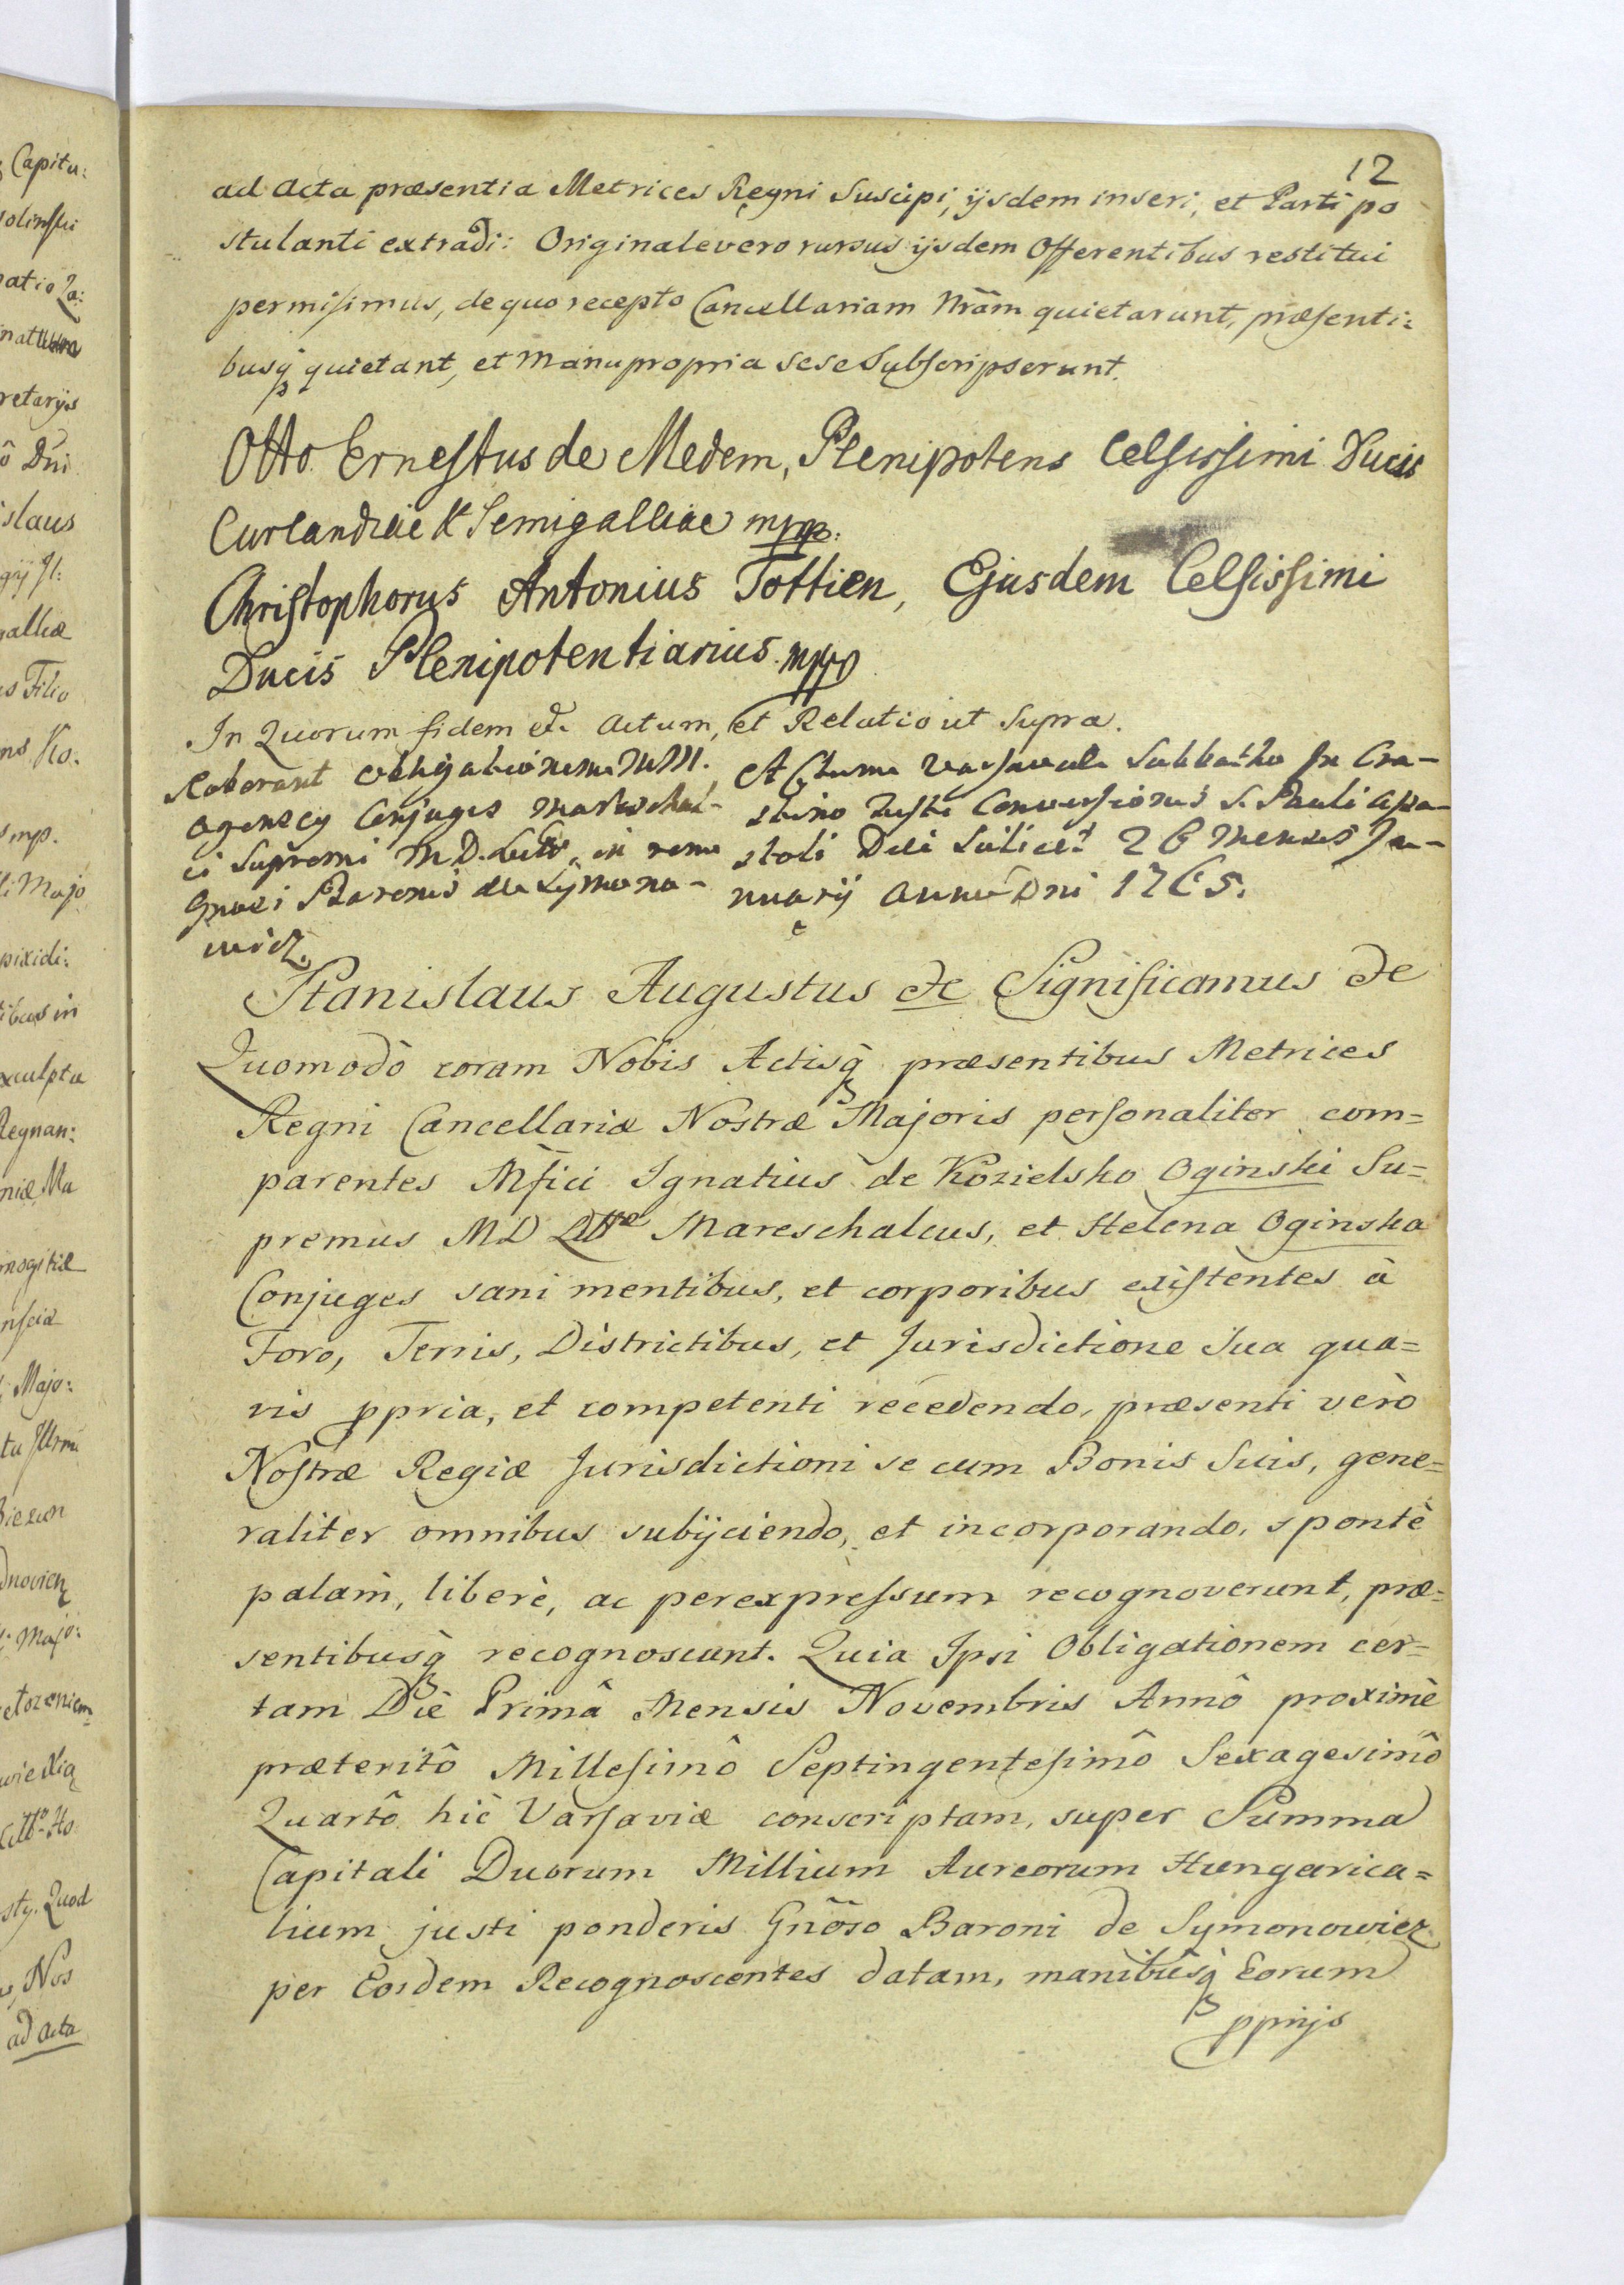 12
ad Acta præsentia Metrices Regni Suscipi, ijsdem inseri, et Parti po
stulanti extradi: Originale vero rursus ijsdem Offerentibus restitui
permisimus, de quo recepto Cancellariam Nrãm quietarunt, præsenti:
busq quietant, et manu propria sese Subscripserunt.
Otto Ernestus de Medem, Plenipotens Celsissimi Ducis
Curlandiae & Semigalliae mpp.
Christophorus Antonius Tottien, Ejusdem Celsissimi
Ducis Plenipotentiarius. mpp
In Quorum fidem etc. Actum, et Relatio ut Supra.
Roborant obligationem MM.
Oginscy Conjuges Mareschal-
ci Supremi M. D. Litt. in rem
Gnosi Baronis de Symono-
wicz.
Actum Varsaviæ Sabbatho In Cra-
stino Festi Conversionis S. Pauli Apo-
stoli Dei Scilicet 26 Mensis Ja-
nuarij Anno Dni 1765.
Stanislaus Augustus etc Significamus etc
Quomodò coram Nobis Actisq præsentibus Metrices
Regni Cancellariæ Nostræ Majoris personaliter com=
parentes Mfici Ignatius de Kozielsko Oginski Su=
premus MD Littæ Mareschalcus, et Helena Oginska
Conjuges sani mentibus, et corporibus existentes à
Foro, Terris, Districtibus, et Jurisdictione Sua qua=
vis ppria, et competenti recedendo, præsenti verò
Nostræ Regiæ Jurisdictioni se cum Bonis Suis, gene=
raliter omnibus subijciendo, et incorporando, spontè
palàm, liberè, ac per expressum recognoverunt, præ=
sentibusq recognoscunt. Quia Ipsi Obligationem cer=
tam Diè Primâ Mensis Novembris Annô proximè
præteritô Millesimô Septingentesimô Sexagesimô
Quartô hìc Varsaviæ conscriptam, super Summa
Capitali Duorum Millium Aureorum Hungarica=
lium justi ponderis Gnõso Baroni de Symonowicz
per Eosdem Recognoscentes datam, manibusq Eorum
pprijs